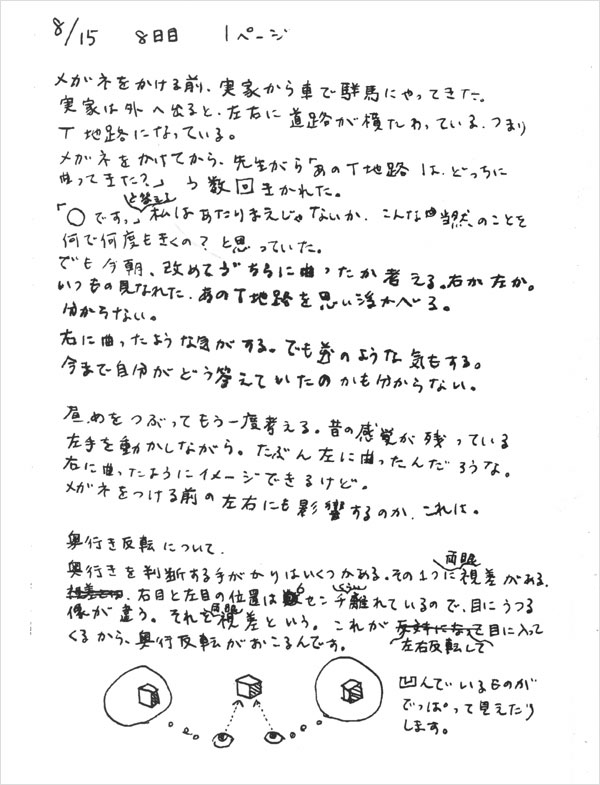 8/15　8日目　1ページ
メガネをかける前、実家から車で群馬にやってきた。
実家は外へ出ると、左右に道路が横たわっている。つまり
T地路になっている。
メガネをかけてから、先生から「あのT地路は、どっちに
曲ってきた?」と数回きかれた。
と答え
「○です。」私はあたりまえじゃないか、こんな当然のことを
何で何度もきくの?と思っていた。
でも今朝、改めてどちらに曲ったか考える。右か左か。
いつもの見なれた、あのT地路を思い浮かべる。
分からない。
右に曲ったような気がする。でも逆のような気もする。
今まで自分がどう答えていたのかも分からない。
昼、めをつぶってもう一度考える。昔の感覚が残っている
左手を動かしながら。たぶん左に曲ったんだろうな。
右に曲ったようにイメージできるけど。
メガネをつける前の左右にも影響するのか、これは。
奥行き反転について.
両眼
奥行きを判断する手がかりはいくつかある。その1つに視差がある。
右目と左目の位置は6センチくらい離れているので、目にうつる
像が違う。それを両眼視差という。これが左右反転して目に入って
くるから、奥行反転がおこるんです。
凹んでいるものが
でっぱって見えたり
します。